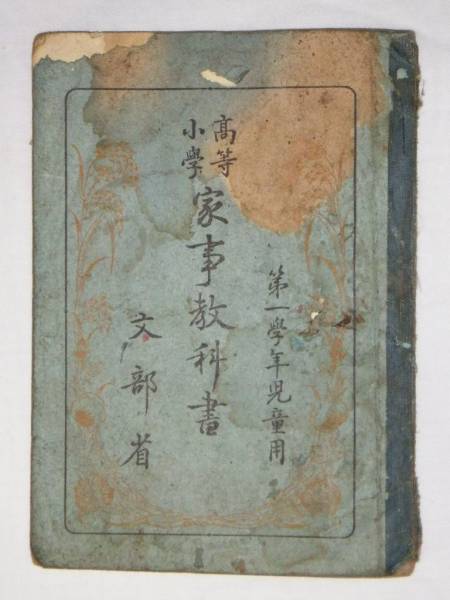 高等
小學
家事教科書
第一學年児童用
文部省